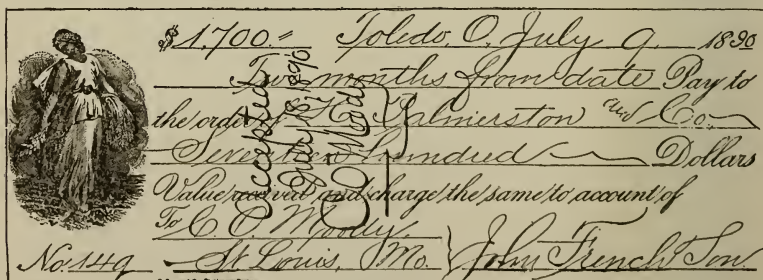 $1,700.= Toledo, O. July 9 1890
Two months from date Pay to
the order of H. Palmerston and Co
Seventeen hundred Dollars
Value received and charge the same to account of
To C. C. Moody,
St Louis, Mo. John French & Son
No. 149
Accepted
July 1890
C. C. Moody